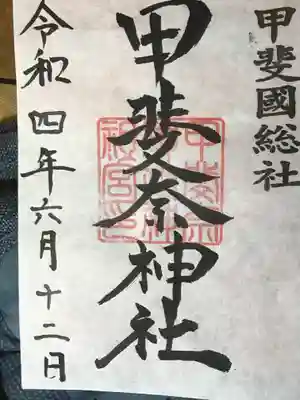 甲斐國総社
甲斐奈神社
令和四年六月十二日